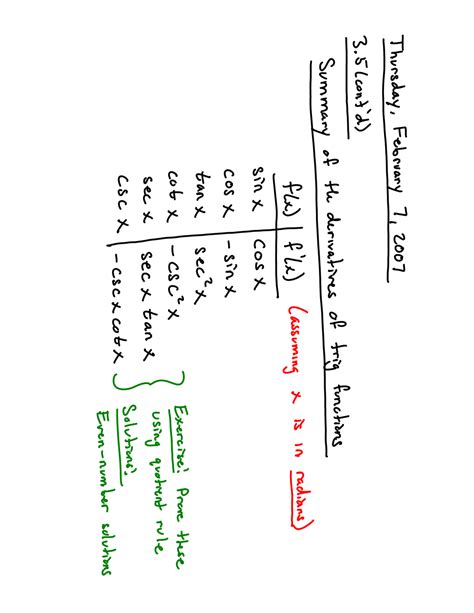 Thursday, February 7, 2007
3.5 (cont'd)
Summary of the derivatives of trig functions
f(x) f'(x) (assuming x is in radians)
sin x cos x
cos x - sin x
tan x sec²x
cot x - csc²x
sec x sec x tan x
csc x - csc x cot x
Exercise: Prove these
using quotient rule
Solutions:
Even-number solutions